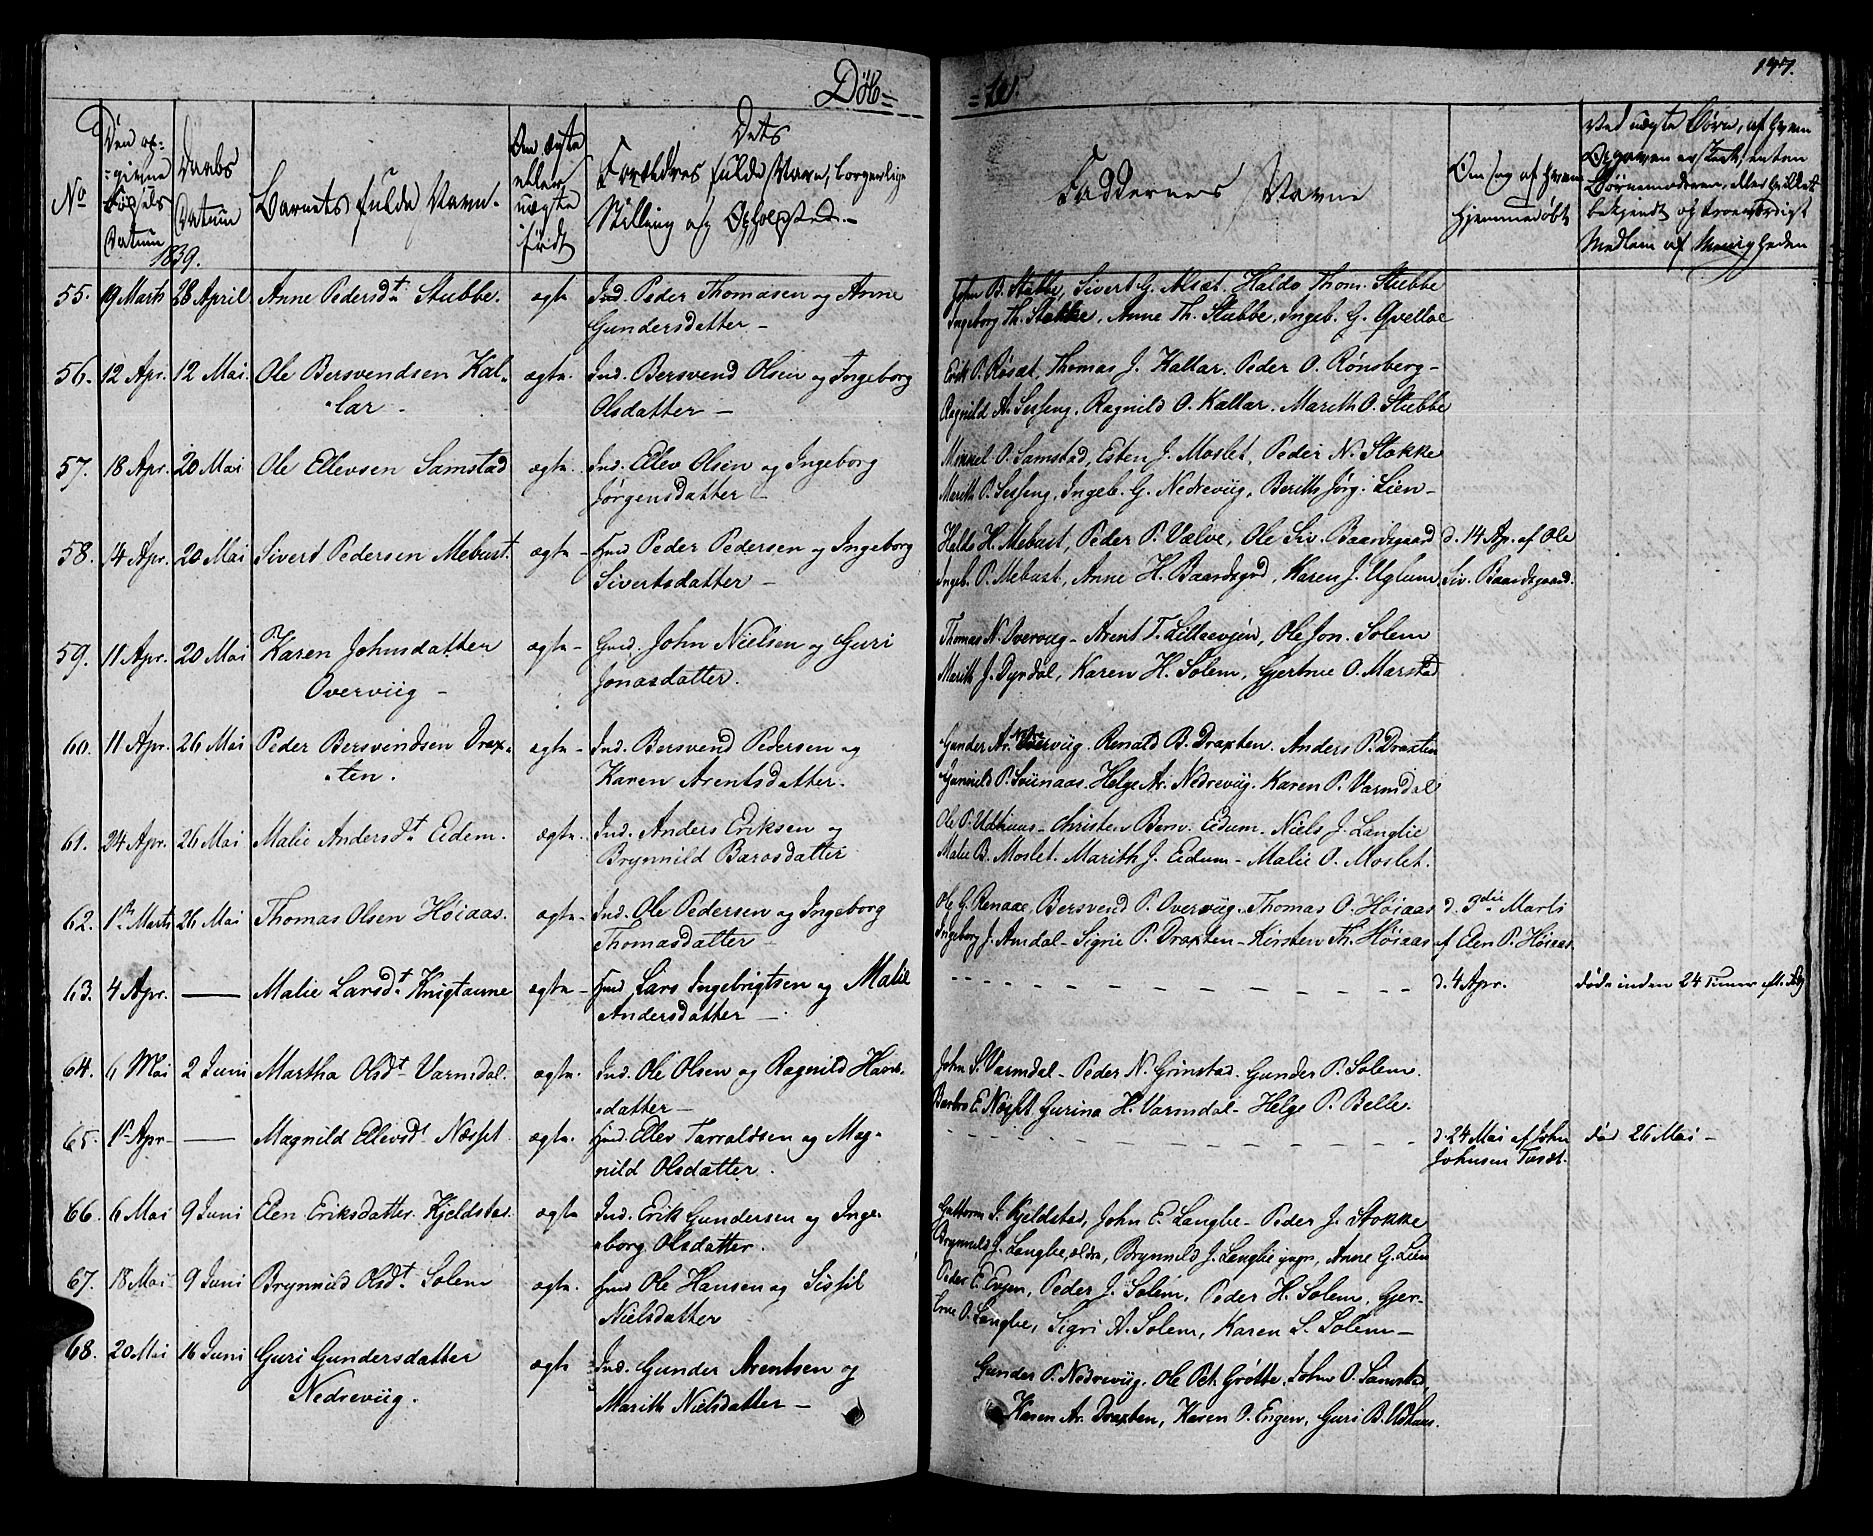 Døb=
=te.
No
Den op=
=givne
Fødsels
Datum
1839.
Daabs
Datum
Barnets fulde Navn.
Om ægte
eller
uægte
født
Dets
Forældres fulde Navn, borgerlige
Stilling og Opholdssted.
Faddernes Navne
Om og af hvem
hjemmedøbt
Ved uægte Børn, af hvem
Opgaven er skeet, enten
Barnemoderen, eller hvilket
bekjendt og troværdigt
Medlem af Menigheden
55. 19 Marts 28 April Anne Pedersdt. Stubbe. ægte Ind. Peder Thomasen og Anne
Gundersdatter –
John B. Stubbe, Sivert G. Alsæt. Haldo Thom. Stubbe
Ingeborg Th. Stokke, Anne Th. Stubbe, Ingeb. G. Qvelloe
56. 12 Apr. 12 Mai. Ole Bersvendsen Kal=
=lar – ægte. Ind. Bersvend Olsen og Ingeborg
Olsdatter –
Erik P. Røsæt, Thomas J. Kallar. Peder O. Rønsberg –
Ragnild A. Sesseng. Ragnild O. Kallar. Marith O. Stubbe
57. 18 Apr. 20 Mai Ole Ellevsen Samstad ægte. Ind. Ellev Olsen og Ingeborg
Jørgensdatter –
Mikkel O. Samstad, Esten J. Moslet, Peder N. Stokke
Marith P. Sesseng, Ingeb. G. Nedreviig, Berith Jørg. Lien –
58. 14 Apr. 20 Mai Sivert Pedersen Mebust. ægte – Huusd Peder Pedersen og Ingeborg
Sivertsdatter –
Haldo H. Mebust, Peder P. Vælve, Ole Siv. Baardsgaard
Ingeb. P. Mebust, Anne H. Baardsgrd, Karen J. Uglum.
d. 14 Ap. af Ole
Siv. Baardsgaard.
59. 11 Apr. 20 Mai Karen Johnsdatter
Overviig – ægte – Gmd. John Nielsen og Guri
Jonasdatter.
Thomas N. Overviig – Arent T. Lillevjen, Ole Jon. Solem
Marith J. Dyrdal, Karen H. Solem, Gjertrue O. Marstad
60. 11 Apr. 26 Mai Peder Bersvendsen Drax=
=ten. ægte – Ind. Bersvend Pedersen og
Karen Arentsdatter.
Gunder Ar. Nedreviig. Renald B. Draxten. Anders P. Draxten
Gunnild P. Sviinaas. Helge Ar. Nedreviig. Karen P. Varmdal
61. 24 Apr. 26 Mai Malie Andersdt. Eidem. ægte. Ind. Anders Eriksen og
Brynnild Barosdatter
Ole P. Udhuus – Christen Bersv. Eidum – Niels J. Langlie
Malie B. Moslet. Marith J. Eidum – Malie O. Moslet.
62. 1ste Marts 26 Mai Thomas Olsen Høiaas. ægte – Ind. Ole Pedersen og Ingeborg
Thomasdatter –
Ole G. Renaae, Bersvend P. Overviig. Thomas O. Høiaas
Ingeborg J. Amdal – Sigrie P. Draxten – Kirsten Th. Høiaas
d. 3die Marts
af Elen P. Høiaas.
63. 4 Apr. — Malie Larsdt. Knigtaune ægte – Huusd. Lars Ingebrigtsen og Malie
Andersdatter –
d. 4 Apr.
døde inden 24 Timer
64. 6 Mai 2 Juni Martha Olsdt. Varmdal. ægte. Ind. Ole Olsen og Ragnild Hans=
=datter –
John S. Varmdal – Peder N. Grinstad. Gunder P. Solem.
Barbro E. Næsset. Gurina H. Varmdal – Helge P. Belle.
65. 1ste Apr – — Magnild Ellevsdt Næsset ægte. Huusd. Ellev Tarraldsen og Mag=
nild Olsdatter.
d. 24 Mai af John
Johnsen Tuset.
død 26 Mai –
66. 6 Mai 9 Juni Elen Eriksdatter Kjeldstad. ægte Ind. Erik Gundersen og Inge=
=borg Olsdatter.
Guttorm J. Kjeldstad, John E. Langlie – Peder J. Stokke
Brynnild J. Langlie, ældre, Brynnild J. Langlie yngr, Anne G. Lien
67. 18 Mai 9 Juni Brynnild Olsdt. Solem ægte. Huusd Ole Hansen og Sissil
Nielsdatter
Peder E. Engen, Peder J. Solem, Peder H. Solem, Gjer=
true O. Langlie, Sigri A. Solem, Karen S. Solem –
68. 20 Mai 16 Juni Guri Gundersdatter
Nedreviig. ægte Ind. Gunder Arentsen og
Marith Nielsdatter –
Gunder P. Nedreviig. Ole Pet. Grøtte. John O. Samstad
Karen Ar. Draxten, Karen O. Engen, Guri B. Udhuus.